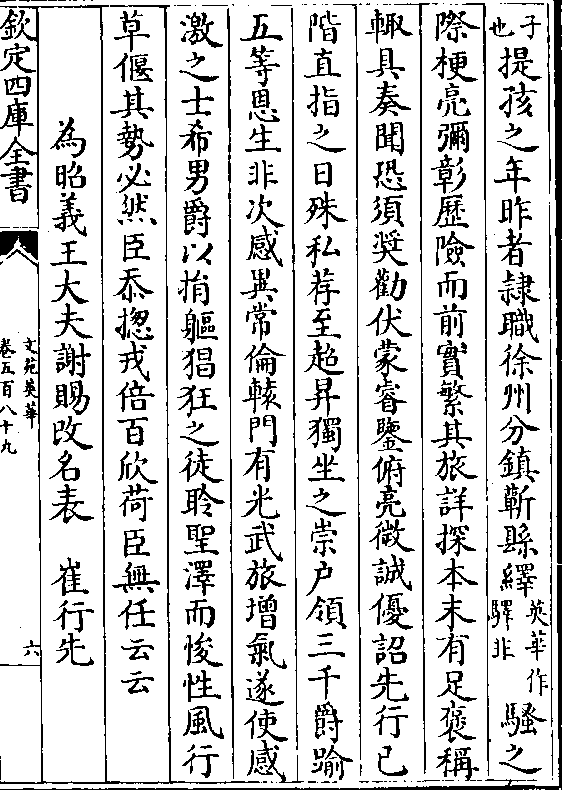 子也提孩之年昨者隷職徐州分鎮蘄縣繹英華作驛非騷之
際梗亮彌彰歷險而前實繁其旅詳探本末有足褒稱
輙具奏聞恐須奬勸伏蒙睿鑒俯亮微誠優詔先行已
階直指之日殊私荐至超昇獨坐之崇户領三千爵踰
五等恩生非次感異常倫轅門有光武旅增氣遂使感
激之士希男爵以捐軀猖狂之徒聆聖澤而悛性風行
草偃其勢必然臣忝揔戎倍百欣荷臣無任云云
為昭義王大夫謝賜改名表 崔行先
欽定四庫全書
文苑英華
卷五百八十九
六